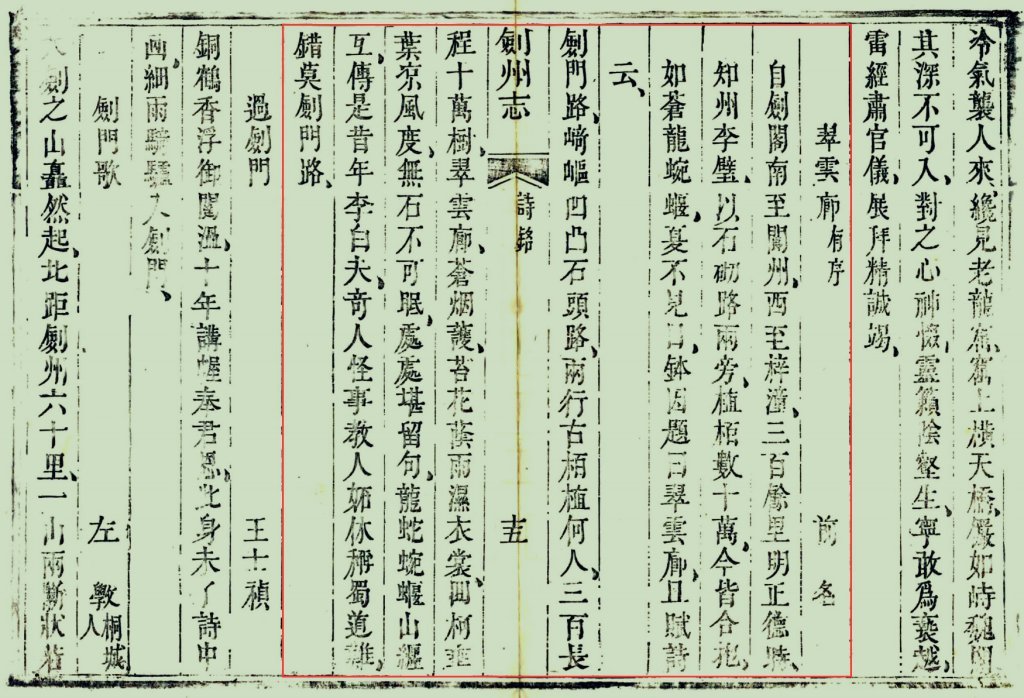 冷氣襲人來、纔見老龍窟、窟上橫天橋、儼如時魏闕、
其深不可入、對之心神惚、靈籟陰壑生、寧敢爲褻越、
雷經肅官儀、展拜精誠竭、
翠雲廊有序 前名
自劍閣南至閬州、西至梓潼、三百餘里、明正德時、
知州李璧、以石砌路、兩旁植栢數十萬、今皆合抱、
如蒼龍蜿蜒、夏不見日、鉢因題曰翠雲廊、且賦詩
云、
劍門路、崎嶇凹凸石頭路、兩行古栢植何人、三百長
劍州志 詩銘 十五
程十萬樹、翠雲廊、蒼烟護、苔花蔭雨濕衣裳、回柯垂
葉凉風度、無石不可眠、處處堪留句、龍蛇蜿蜒山纒
互、傳是昔年李白夫、奇人怪事教人妬、休稱蜀道難、
錯莫劍門路、
過劍門 王士禎
銅鶴香浮御閣溫、十年講幄奉君恩、此身未了詩中
画、細雨騎驢入劍門、
劍門歌 左 斆桐城人
大劍之山矗然起、北距劍州六十里、一山兩斷狀若